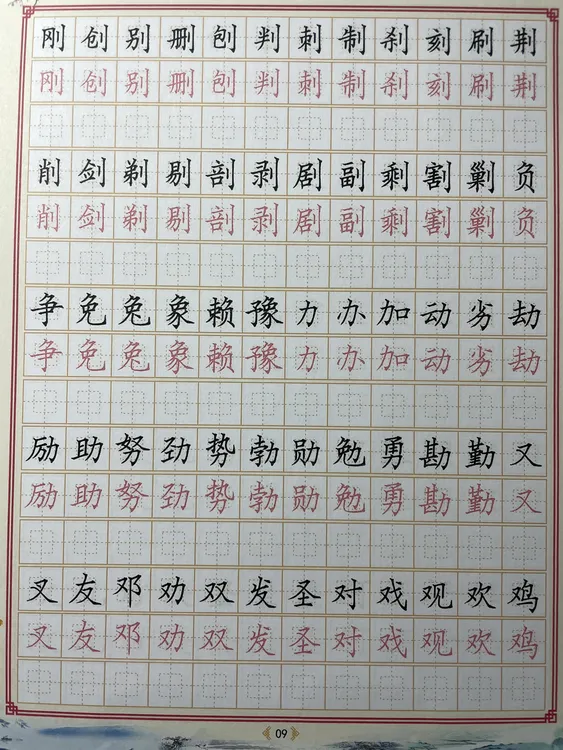 刚创别删刨判刺制刹刻刷荆
刚创别删刨判刺制刹刻刷荆
削剑剃剔剖剥剧副剩割剿负
削剑剃剔剖剥剧副剩割剿负
争免兔象赖豫力办加动劣劫
争免兔象赖豫力办加动劣劫
励助努劲势勃勋勉勇勘勤又
励助努劲势勃勋勉勇勘勤又
叉友邓劝双发圣对戏观欢鸡
叉友邓劝双发圣对戏观欢鸡
09